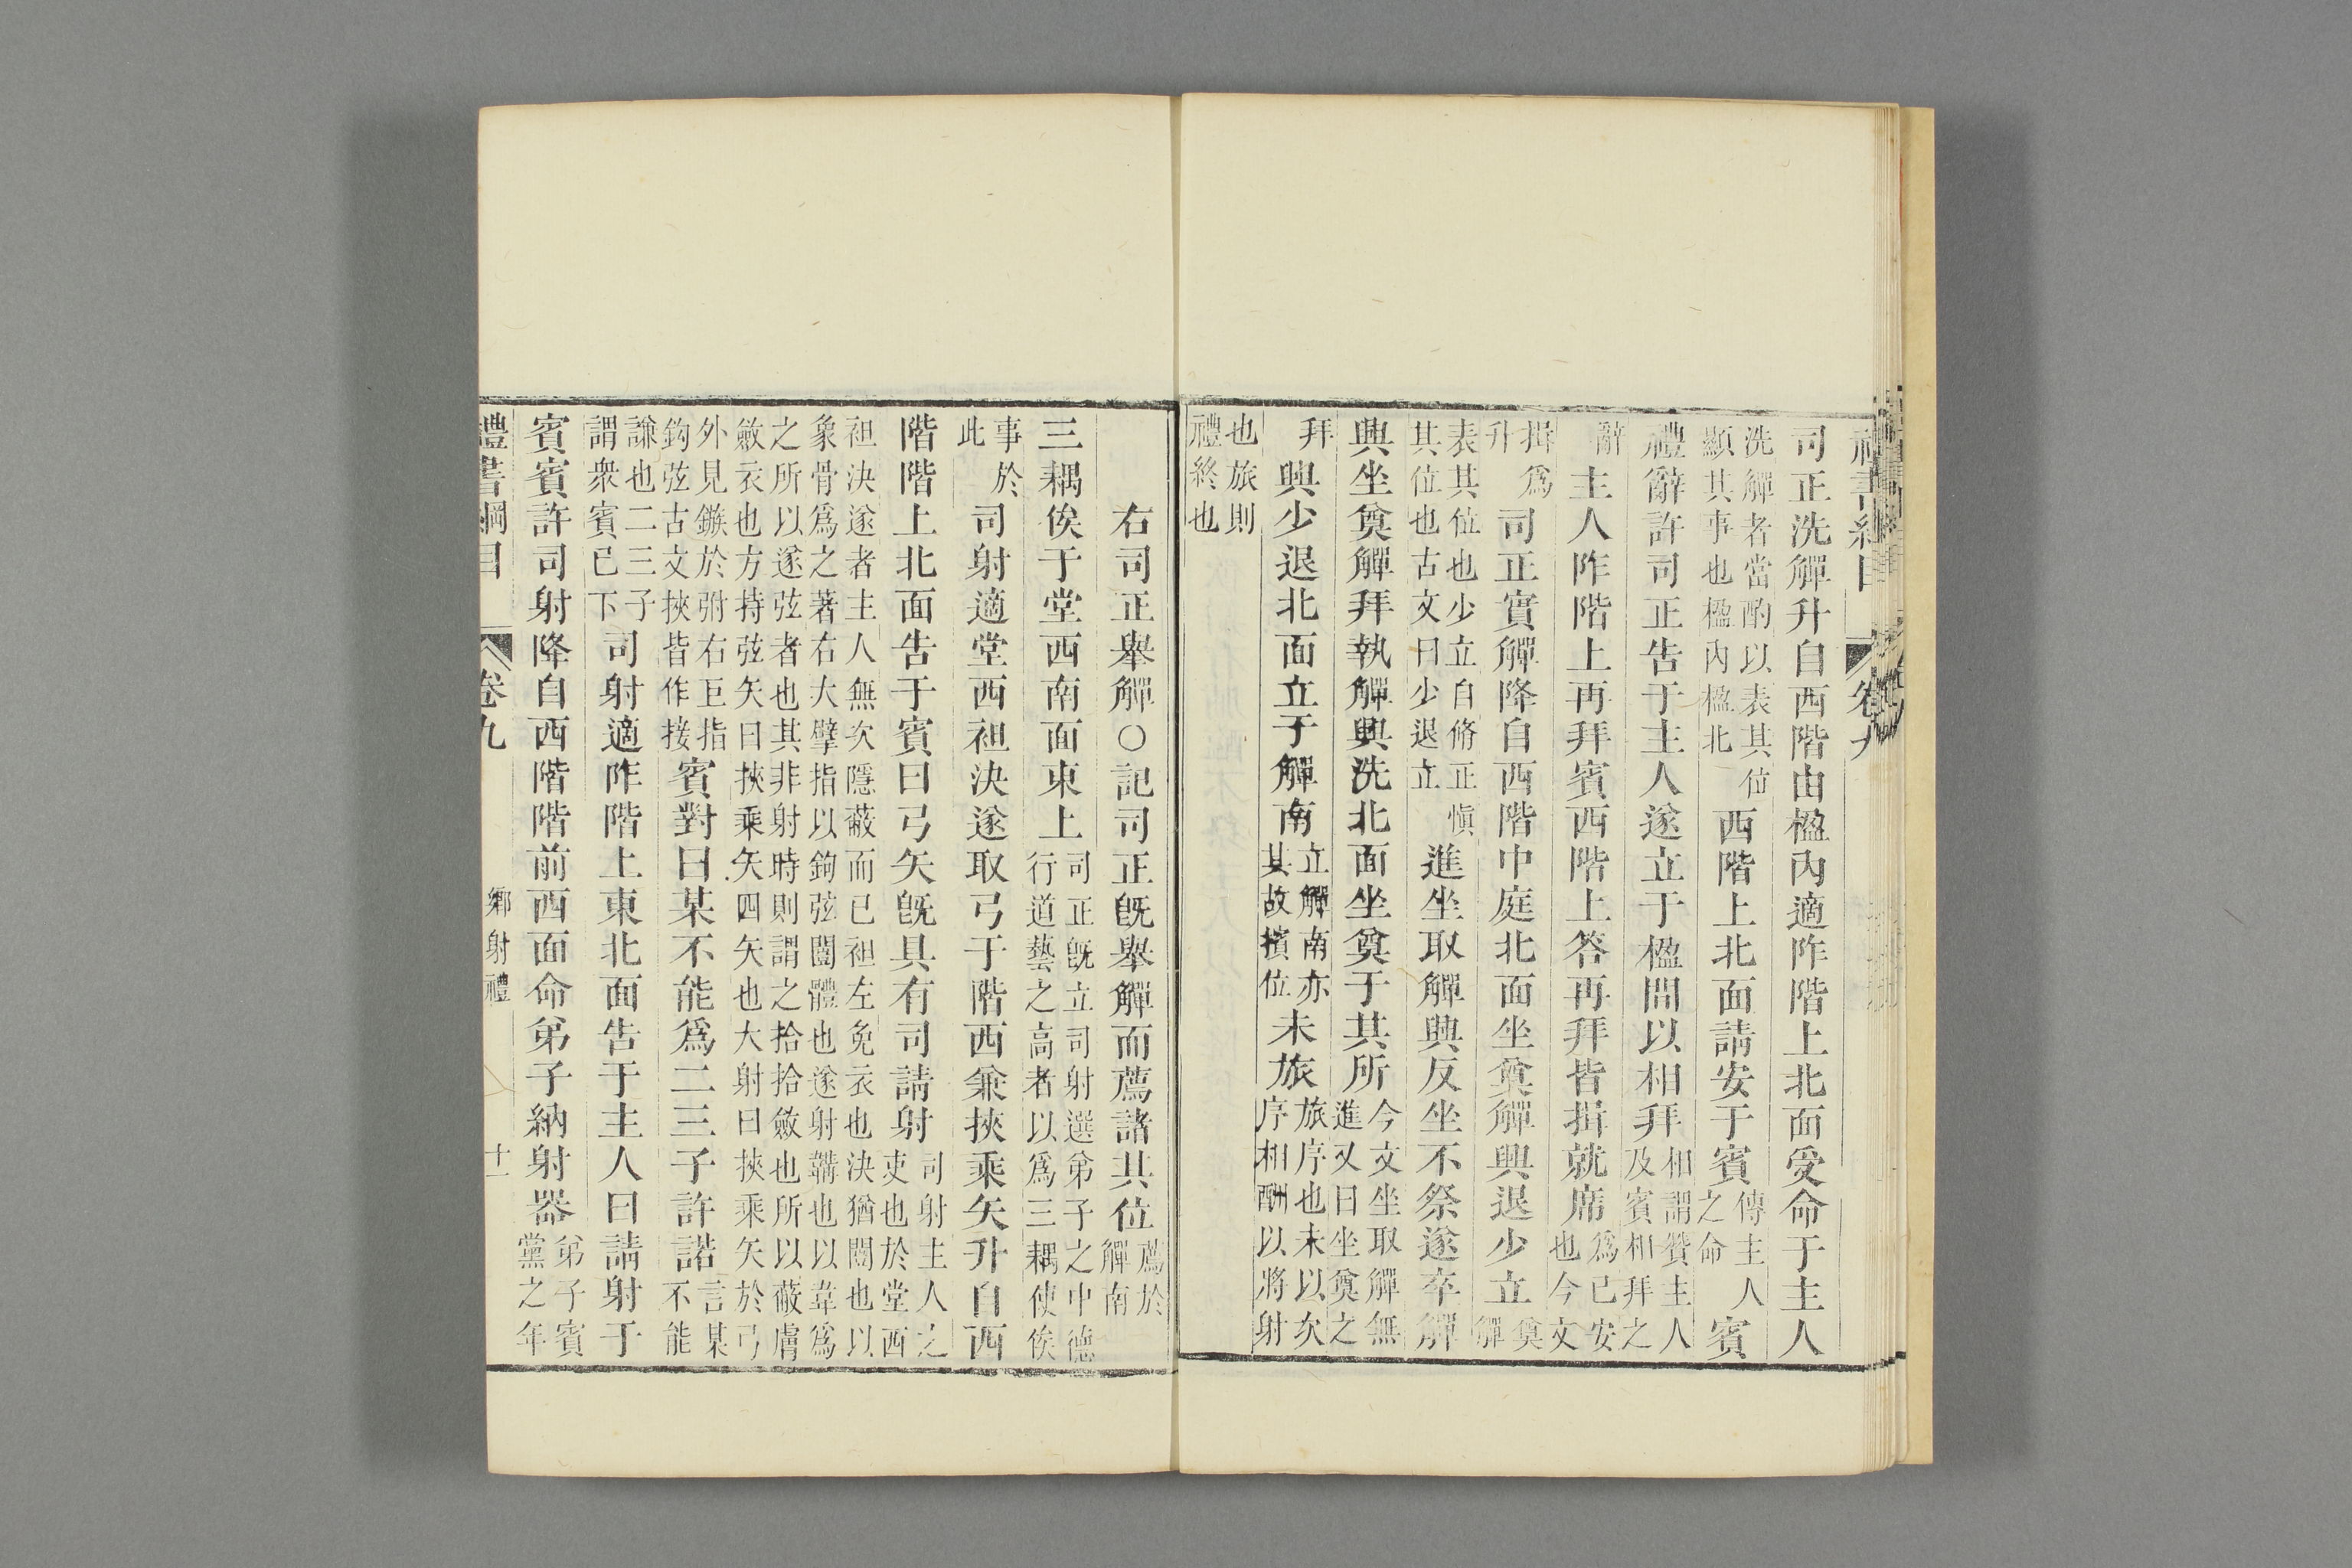 司正洗觶升自西階由楹内適阼階上北面受命于主人
洗觶者當酌以表其位顯其事也楹内楹北西階上北面請安于賓傳主人之命賓
禮辭許司正告于主人遂立于楹間以相拜相謂贊主人及賓相拜之
辭主人阼階上再拜賓西階上答再拜皆揖就席爲已安也今文
揖爲升司正實觶降自西階中庭北面坐奠觶興退少立奠觶
表其位也少立自脩正愼其位也古文曰少退立進坐取觶興反坐不祭遂卒觶
興坐奠觶拜執觶興洗北面坐奠于其所今文坐取觶無進又曰坐奠之
拜興少退北面立于觶南立觶南亦其故擯位未旅旅序也未以次序相酬以將射
也旅則禮終也
右司正舉觶○記司正旣舉觶而薦諸其位薦於觶南
三耦俟于堂西南面東上司正旣立司射選弟子之中德行道藝之高者以爲三耦使俟
事於此司射適堂西袒決遂取弓于階西兼挾乘矢升自西
階階上北面告于賓曰弓矢旣具有司請射司射主人之吏也於堂西
袒決遂者主人無次隱蔽而已袒左免衣也決猶闓也以
象骨爲之著右大擘指以鉤弦闓體也遂射韝也以韋爲
之所以遂弦者也其非射時則謂之拾拾斂也所以蔽膚
斂衣也方持弦矢曰挾乘矢四矢也大射曰挾乘矢於弓
外見鏃於弣右巨指鈎弦古文挾皆作接賓對曰某不能爲二三子許諾言某不能
謙也二三子謂衆賓已下司射適阼階上東北面告于主人曰請射于
賓賓許司射降自西階階前西面命弟子納射器弟子賓黨之年
禮書綱目 卷九 鄉射禮 十一